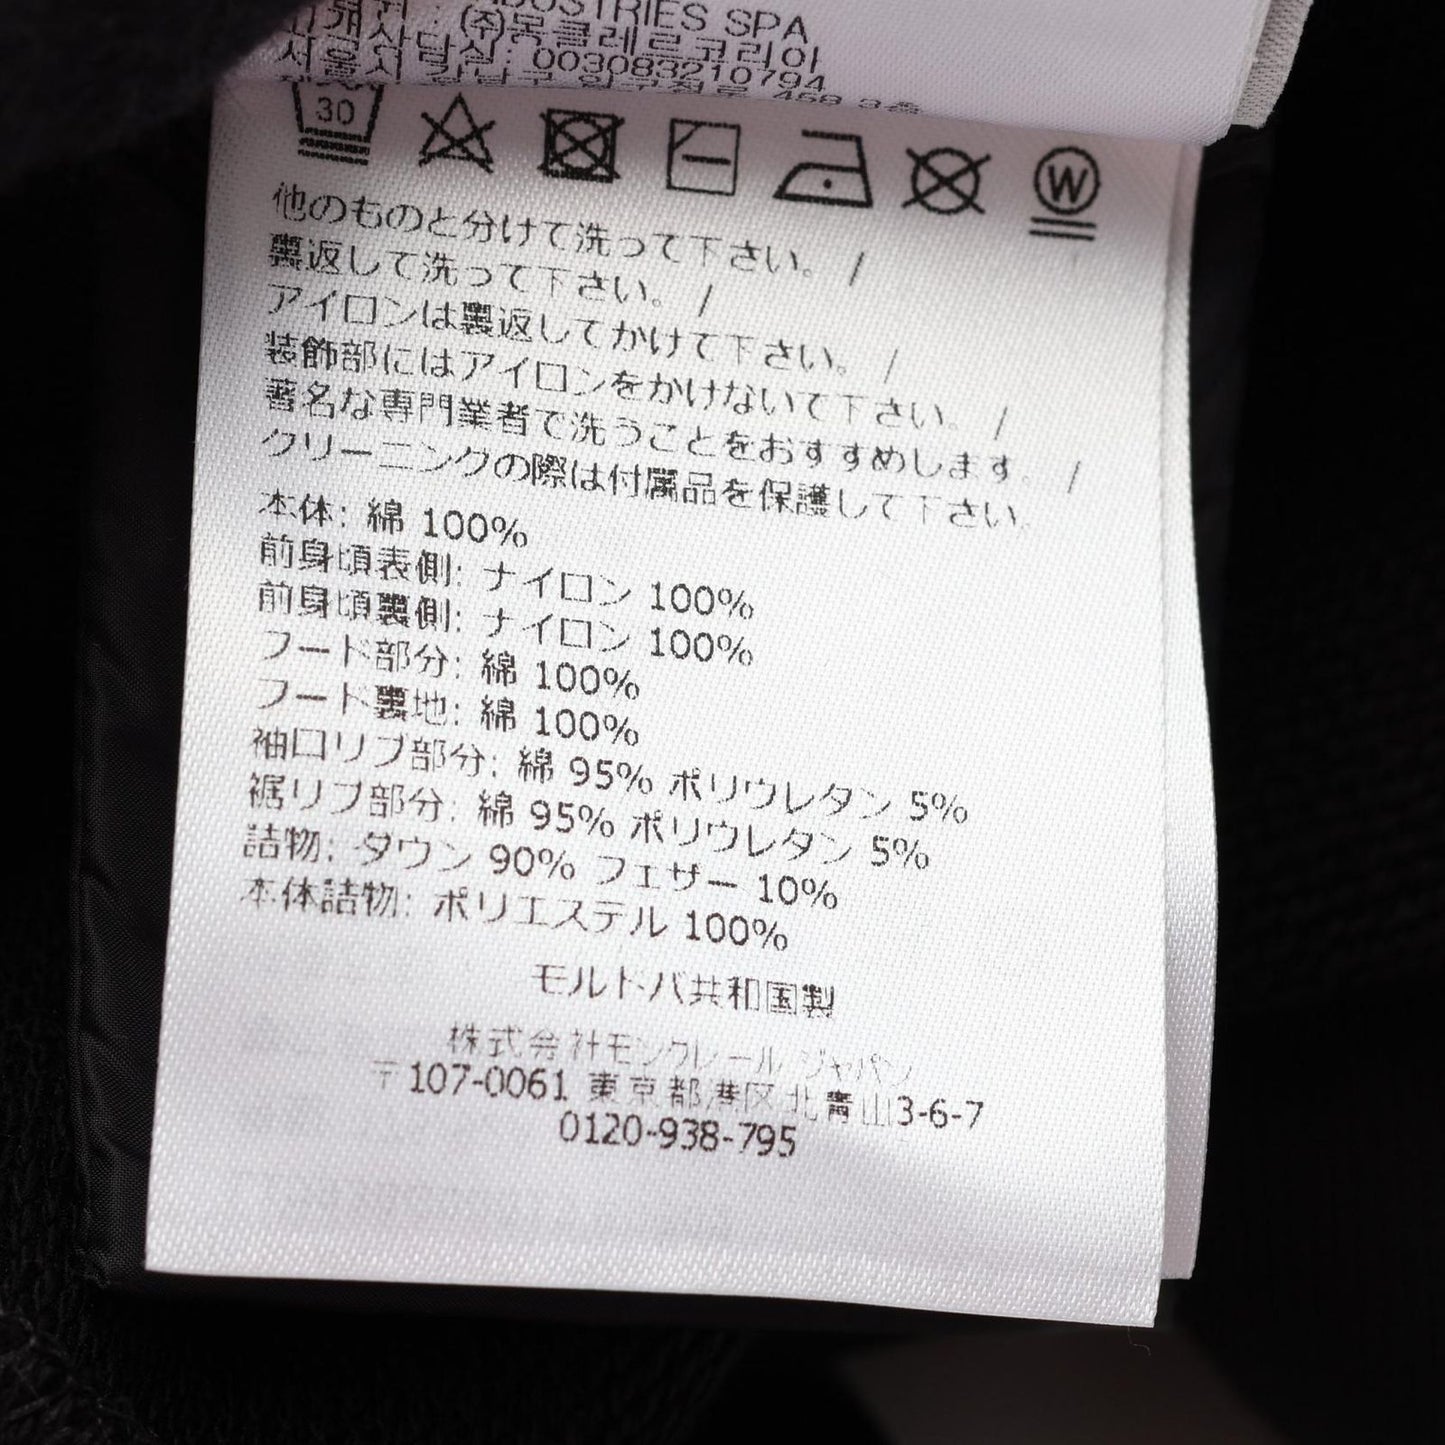 INDUSTRIES SPA
(주)몽클레르코리아
003083210794
30
W
他のものと分けて洗って下さい。 /
裏返して洗って下さい。 /
アイロンは裏返してかけて下さい。 /
装飾部にはアイロンをかけないで下さい。 /
著名な専門業者で洗うことをおすすめします。 /
クリーニングの際は付属品を保護して下さい。
本体: 綿 100%
前身頃表側: ナイロン 100%
前身頃裏側: ナイロン 100%
フード部分: 綿 100%
フード裏地: 綿 100%
袖口リブ部分: 綿 95% ポリウレタン 5%
裾リブ部分: 綿 95% ポリウレタン 5%
詰物: ダウン 90% フェザー 10%
本体詰物: ポリエステル 100%
モルドバ共和国製
株式会社モンクレール ジャパン
〒107-0061 東京都港区北青山3-6-7
0120-938-795